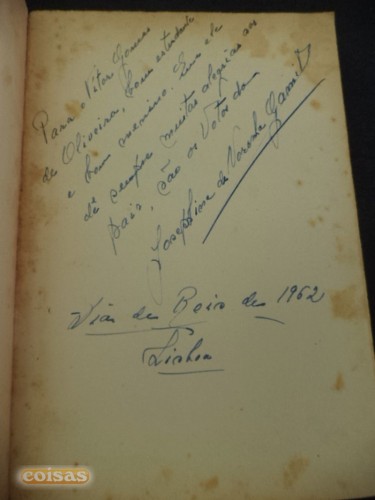 Para o Vitor Gomes
de Oliveira, bom estudante
e bom menino. Que ele
dê sempre muitas alegrias aos
pais, são os votos da
Josephine de Noronha
Dia de Reis de 1962
Lisboa
coisas